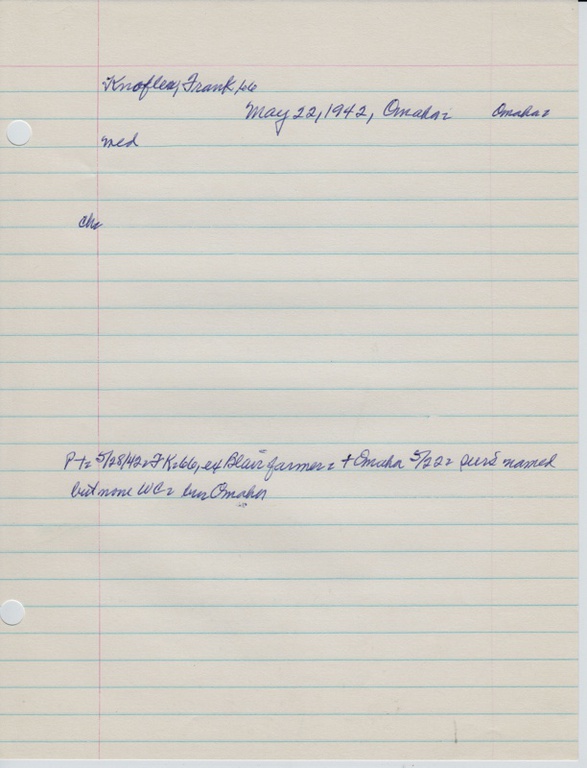 Knoflex, Frank, 66
May 22, 1942, Omaha= Omaha=
med
ch=
P+= 5/28/42= FK=66, ex Blair farmer= + Omaha 5/22= surs named
but none WC= bur Omaha